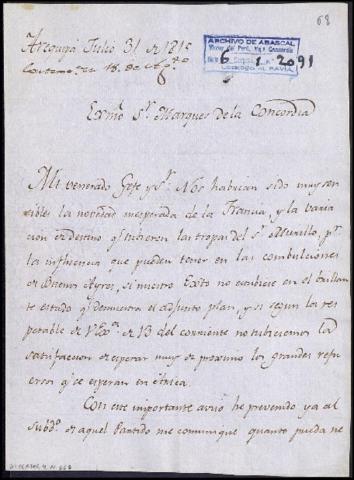 68
Arequipa Julio 31 de 1815
Contest. en 18. de Ag.to
ARCHIVO DE ABASCAL
Virrey del Perú, Mqs Concordia
6 1 2091
Exmo Sr. Marques de la Concordia
Mi venerado Gefe y Sr. Nos habrian sido muy sen
sibles la novedad inesperada de la Francia, y la varia
cion de destino q.e tubieron las tropas del Sr. Murillo, pr.
la influencia que pueden tener en las combulciones
de Buenos Ayres, si nuestro Exto no estubiese en el brillan
te estado q.e demuestra el adjunto plan, y si segun la res
petable de V Exa. de 13 del corriente no tubiesemos la
satisfaccion de esperar muy de proximo los grandes refu
erzos q.e se esperan en Arica.
Con este importante aviso he prevenido ya al
Subdo. de aquel Partido me comunique quanto pueda ne